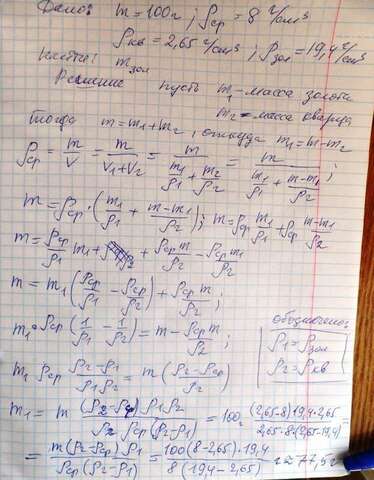 Дано: m = 100г; ρср = 8 г/см³
ρкв = 2,65 г/см³; ρзол = 19,4 г/см³
Найти: mзол
Решение пусть m₁ - масса золота
m₂ - масса кварца
Тогда m = m₁ + m₂, откуда m₁ = m - m₂
ρср = m/V = m/(V₁+V₂) = m/(m₁/ρ₁ + m₂/ρ₂) = m/(m₁/ρ₁ + (m-m₁)/ρ₂);
m = ρср · (m₁/ρ₁ + (m-m₁)/ρ₂); m = ρср m₁/ρ₁ + ρср (m-m₁)/ρ₂
m = ρср/ρ₁ m₁ + ρср m/ρ₂ - ρср m₁/ρ₂
m = m₁(ρср/ρ₁ - ρср/ρ₂) + ρср m/ρ₂;
m₁ · ρср (1/ρ₁ - 1/ρ₂) = m - ρср m/ρ₂;
обозначено:
ρ₁ = ρзол
ρ₂ = ρкв
m₁ ρср (ρ₂-ρ₁)/(ρ₁ρ₂) = m((ρ₂-ρср)/ρ₂)
m₁ = m (ρ₂-ρср)ρ₁ρ₂/(ρ₂ ρср(ρ₂-ρ₁)) = 100г (2,65-8)19,4·2,65/(2,65·8(2,65-19,4)) =
= m(ρ₂-ρср)ρ₁/(ρср(ρ₂-ρ₁)) = 100(8-2,65)·19,4/(8(19,4-2,65)) ≈ 77,5г